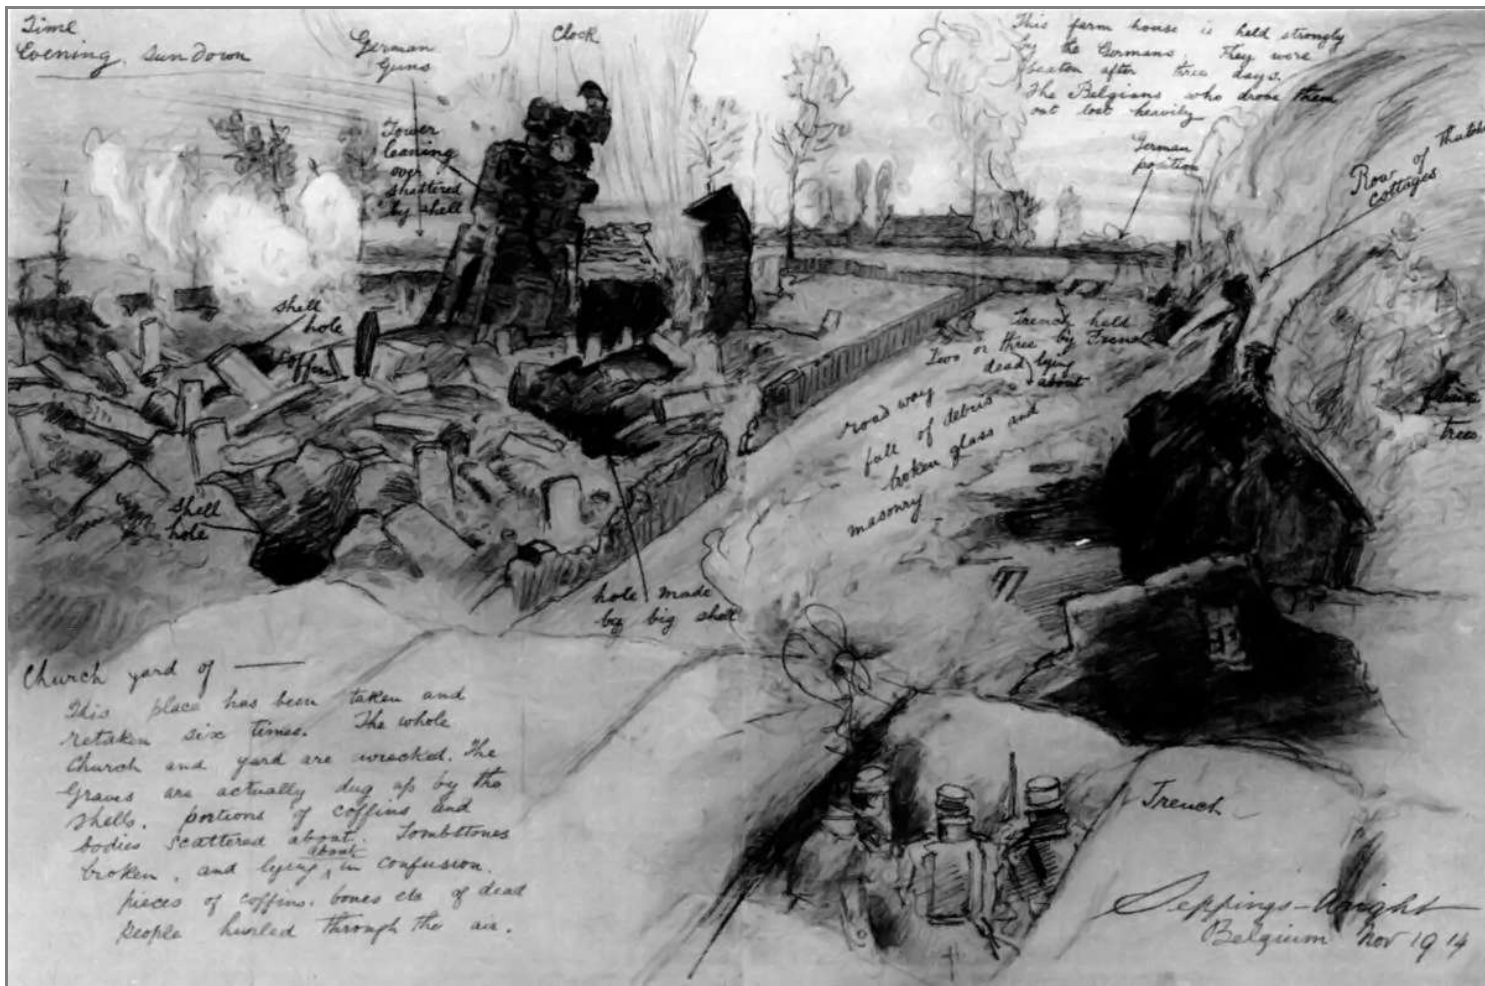 Time
Evening. Sun Down
German
Guns
Clock
This farm house is held strongly
by the Germans. They were
beaten after three days.
The Belgians who drove them
out lost heavily
Tower
leaning
over
shattered
by shell
German
position
Row of thatch
cottages
shell
hole
coffin
Trench held
Two or three by French
dead lying
about
road way
full of debris
broken glass and
masonry
trees
shell
hole
hole made
by big shell
Church yard of —
This place has been taken and
retaken six times. The whole
Church and yard are wrecked. The
Graves are actually dug up by the
shells. portions of coffins and
bodies scattered about. Tombstones
broken, and lying about in confusion.
pieces of coffins. bones etc of dead
people hurled through the air.
Trench
Seppings-Wright
Belgium Nov 1914